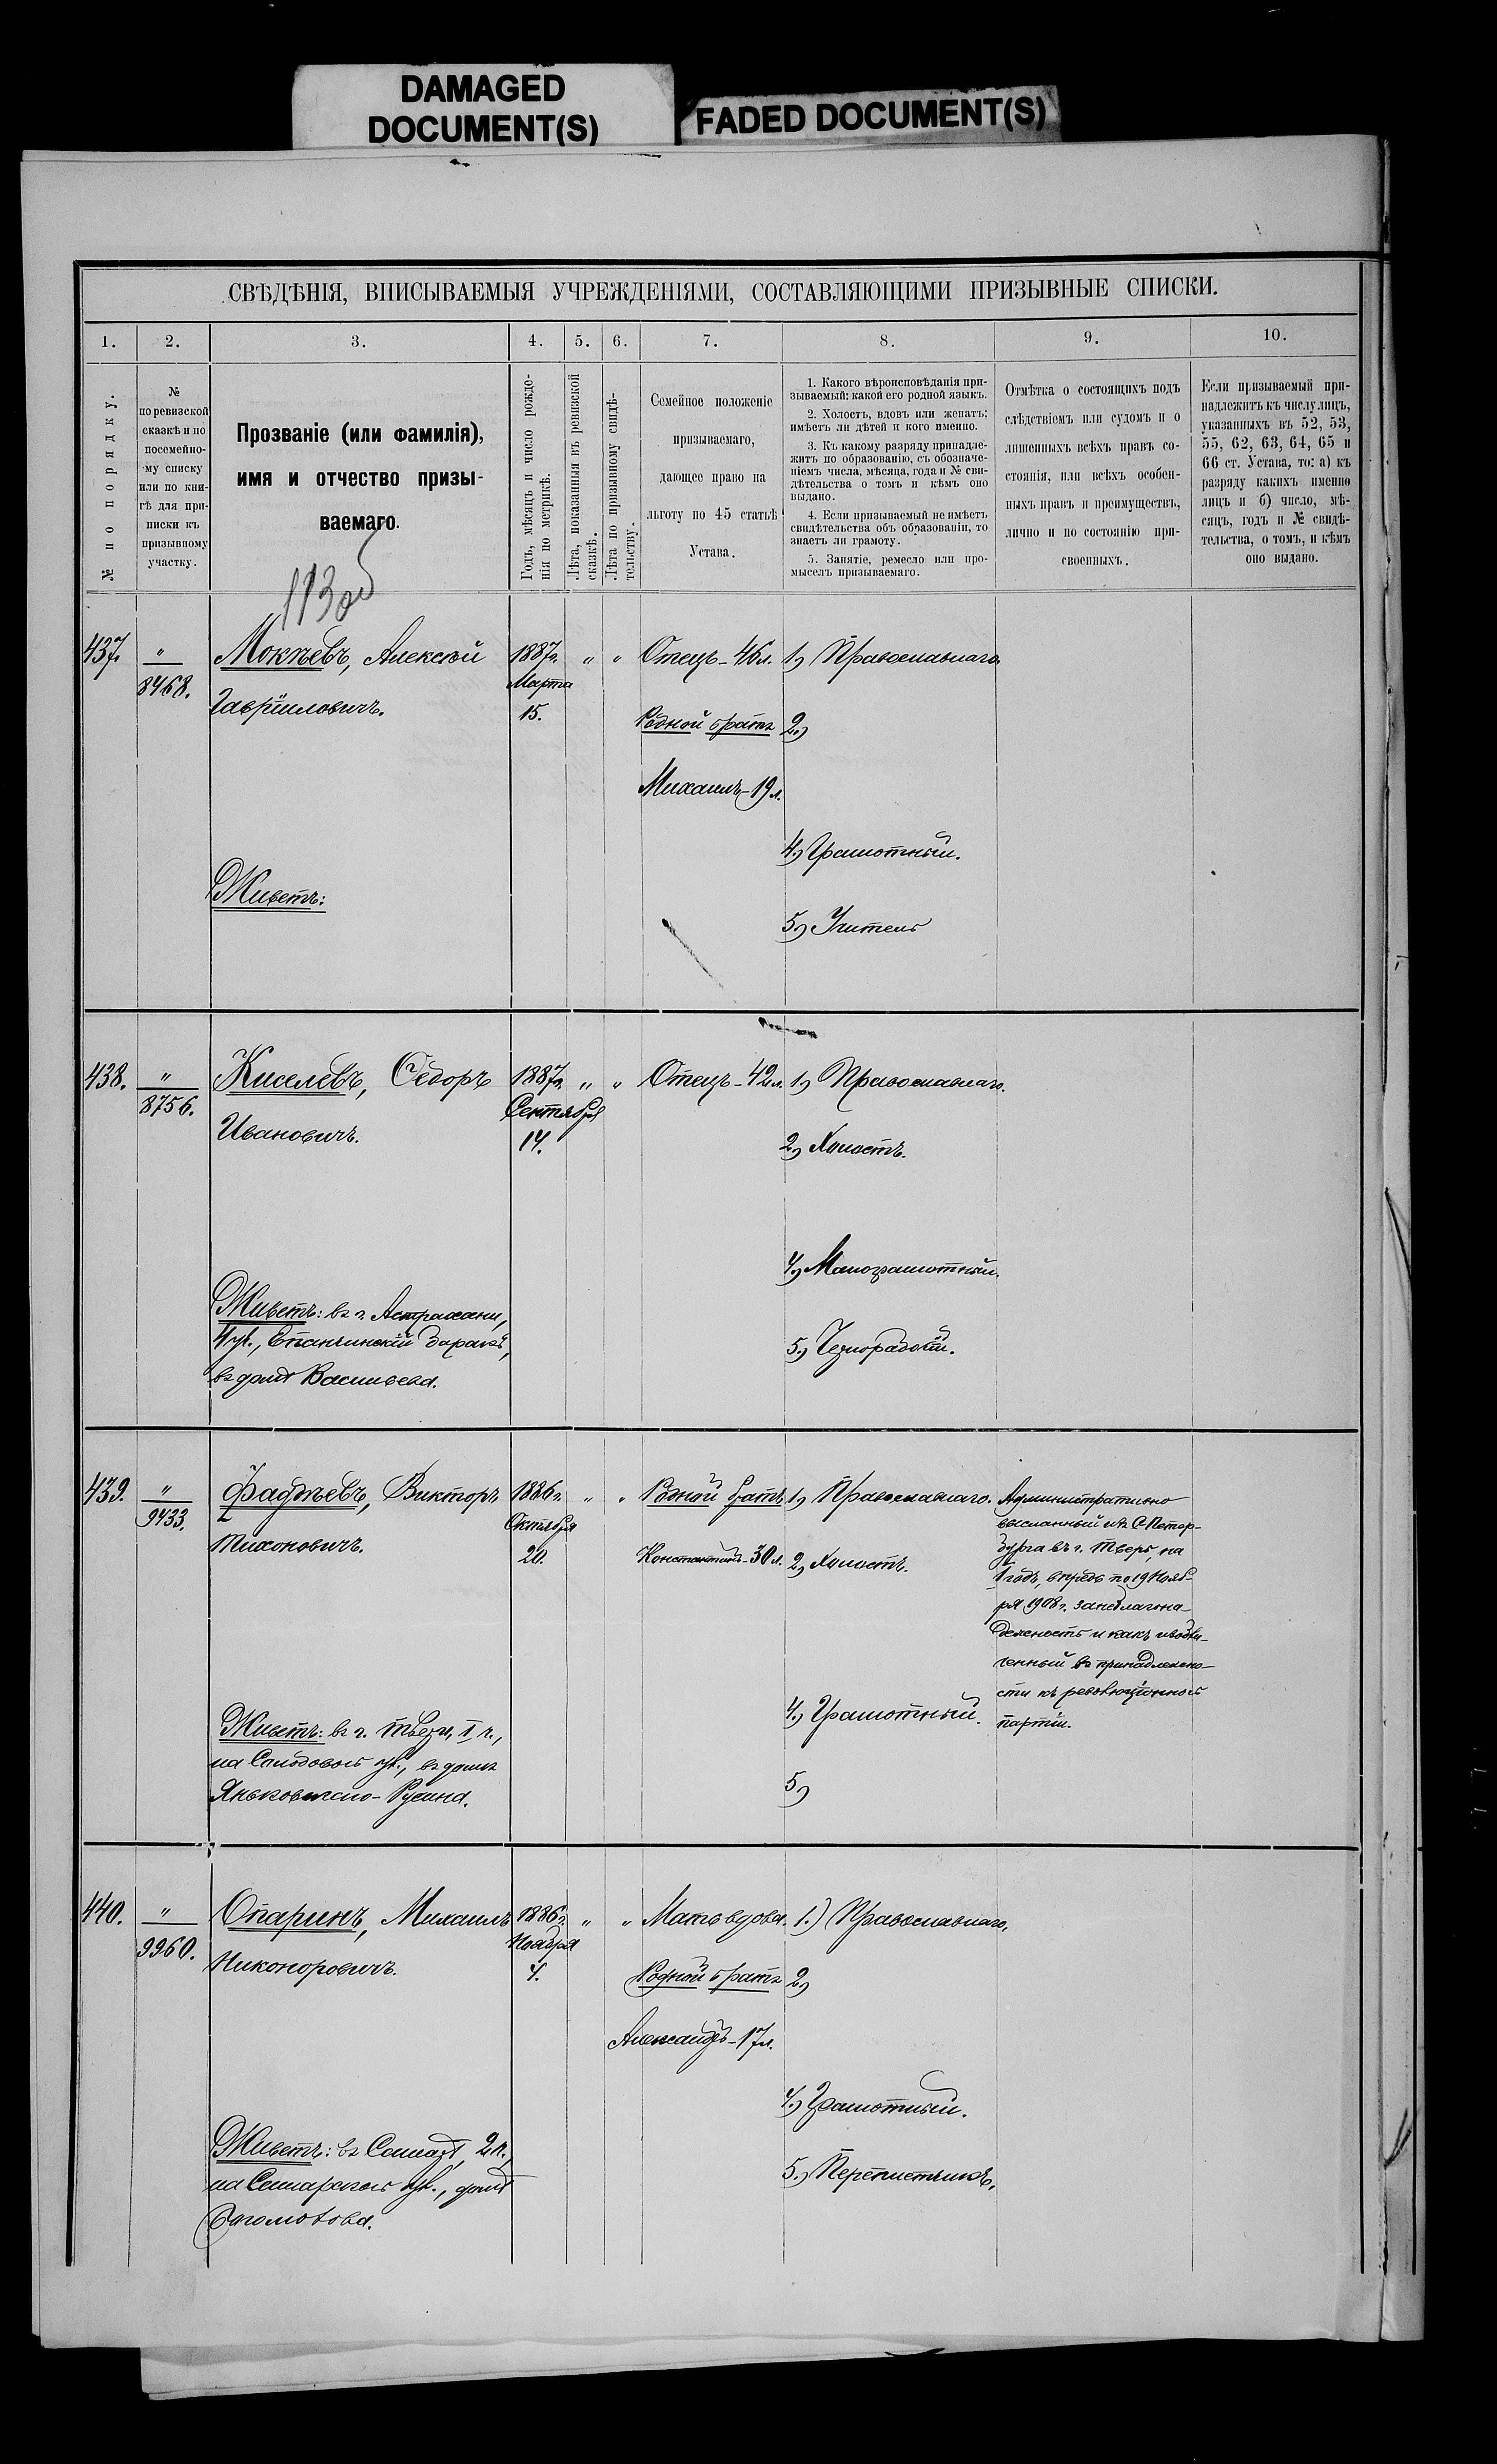 DAMAGED
DOCUMENT(S)
FADED DOCUMENT(S)
СВѢДѢНІЯ, ВПИСЫВАЕМЫЯ УЧРЕЖДЕНІЯМИ, СОСТАВЛЯЮЩИМИ ПРИЗЫВНЫЕ СПИСКИ.
1. 2. 3. 4. 5. 6. 7. 8. 9. 10.
№ по порядку.
№
по ревизской
сказкѣ и по
посемейно-
му списку
или по кни-
гѣ для при-
писки къ
призывному
участку.
Прозваніе (или фамилія),
имя и отчество призы-
ваемаго.
Годъ, мѣсяцъ и число рожде-
нія по метрикѣ.
Лѣта, показанныя въ ревизской
сказкѣ.
Лѣта по призывному свидѣ-
тельству.
Семейное положеніе
призываемаго,
дающее право на
льготу по 45 статьѣ
Устава.
1. Какого вѣроисповѣданія при-
зываемый: какой его родной языкъ.
2. Холостъ, вдовъ или женатъ;
имѣетъ ли дѣтей и кого именно.
3. Къ какому разряду принадле-
житъ по образованію, съ обозначе-
ніемъ числа, мѣсяца, года и № сви-
дѣтельства о томъ и кѣмъ оно
выдано.
4. Если призываемый не имѣетъ
свидѣтельства объ образованіи, то
знаетъ ли грамоту.
5. Занятіе, ремесло или про-
мыселъ призываемаго.
Отмѣтка о состоящихъ подъ
слѣдствіемъ или судомъ и о
лишенныхъ всѣхъ правъ со-
стоянія, или всѣхъ особен-
ныхъ правъ и преимуществъ,
лично и по состоянію при-
своенныхъ.
Если призываемый при-
надлежитъ къ числу лицъ,
указанныхъ въ 52, 53,
55, 62, 63, 64, 65 и
66 ст. Устава, то: а) къ
разряду какихъ именно
лицъ и б) число, мѣ-
сяцъ, годъ и № свидѣ-
тельства, о томъ, и кѣмъ
оно выдано.
113 об
437. " Мокѣевъ, Алексѣй 1887г. " " Отецъ - 46 л. 1) Православнаго.
8468. Гавріиловичъ. Марта
15. Родной братъ 2)
Михаилъ - 19 л.
4) Грамотный.
Живетъ:
5) Учитель
438. " Киселевъ, Ѳедоръ 1887г. " " Отецъ - 42 л. 1) Православнаго.
8756. Ивановичъ. Сентября
14. 2) Холостъ.
4) Малограмотный.
Живетъ: въ г. Астрахани,
4 уч., Епанчинскій
въ домѣ Васильева.
5) Чернорабочій.
439. " Фадѣевъ, Викторъ 1886г. " " Родной братъ 1) Православнаго. Административно
9433. Тихоновичъ. Октября
20. Константинъ - 30 л. 2) Холостъ.
высланный изъ С. Петер-
бурга въ г. Тверь, на
1 годъ, впредь по 19 Нояб-
ря 1908 г. за неблагона-
дежность и какъ изобли-
ченный въ принадлежно-
сти къ революціонной
партіи.
4) Грамотный.
Живетъ: въ г. Твери, 1 ч.,
на Солодовой ул., въ домѣ
5)
440. " Опаринъ, Михаилъ 1886г. " " Мать вдова. 1.) Православнаго.
9960. Никоноровичъ. Ноября
4. Родной братъ 2)
Александръ - 17 л.
4) Грамотный.
Живетъ: въ Самарѣ, 2 ч.,
на Самарской ул., домъ
5.) Переписчикъ.